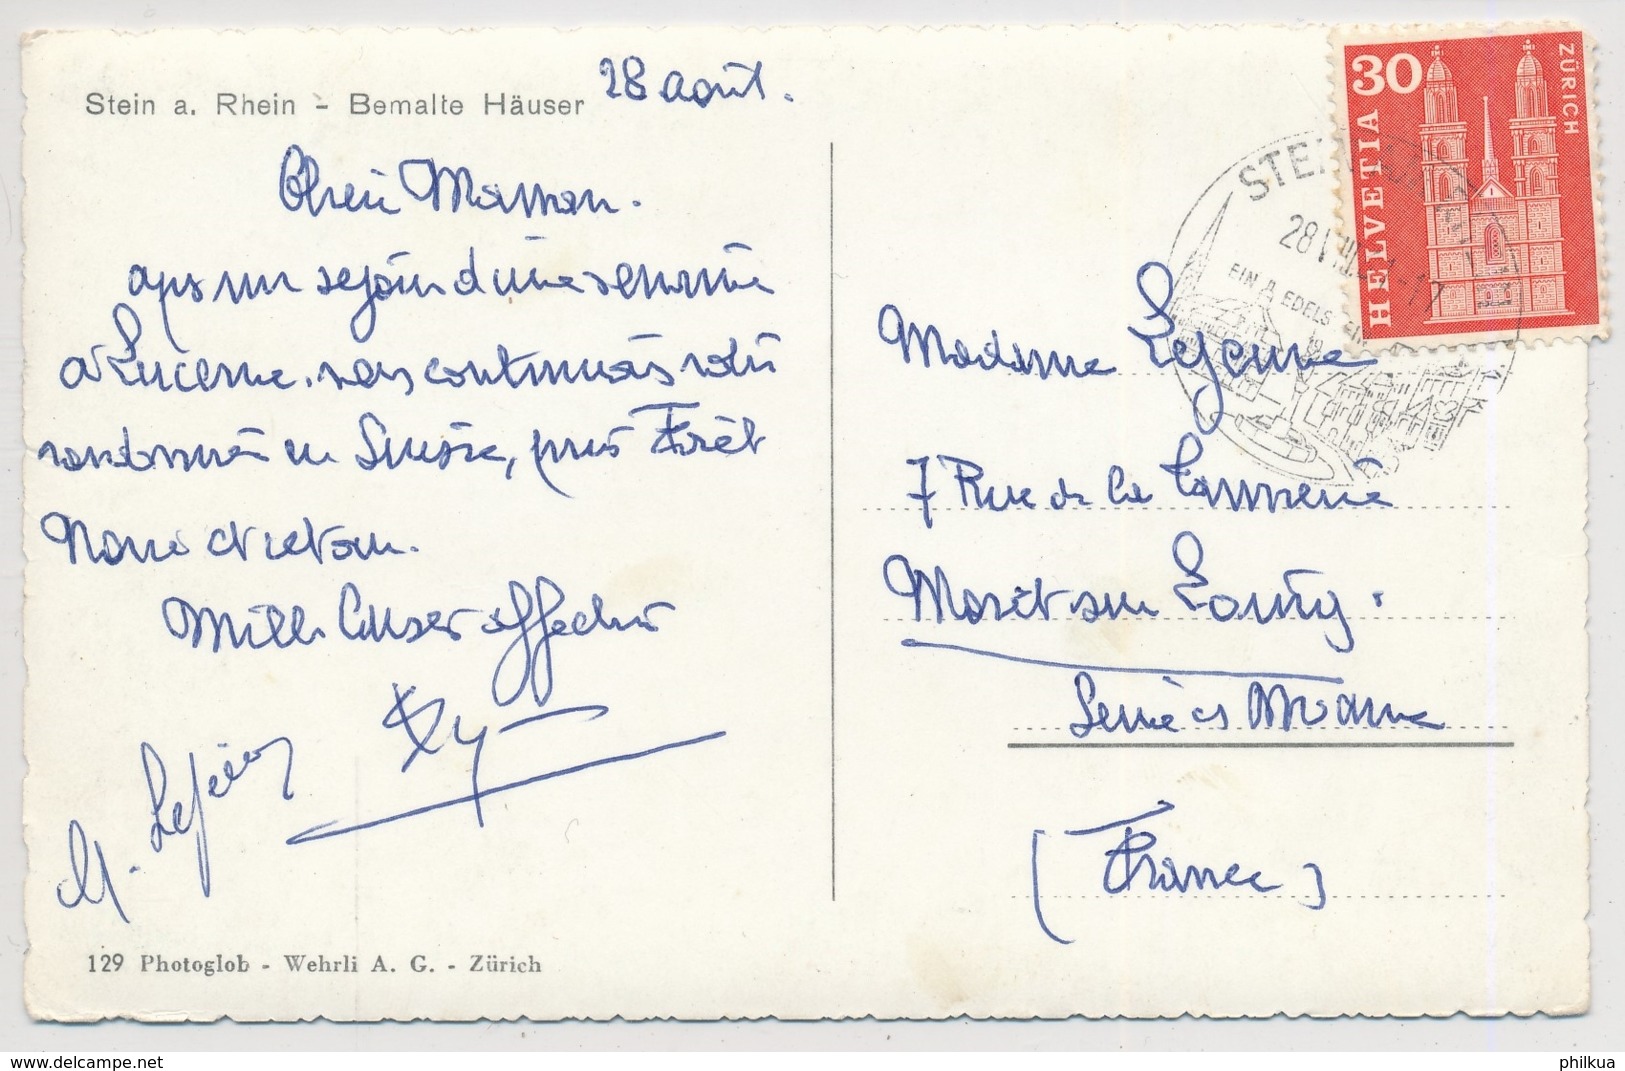 Stein a. Rhein - Bemalte Häuser
28 août.
Chère Maman.
après un séjour d'une semaine
à Lucerne, nous continuons notre
randonnée en Suisse, puis Forêt
Noire et retour.
Mille baisers affectueux
M. Lejeune
129 Photoglob - Wehrli A. G. - Zürich
30
HELVETIA
ZÜRICH
STEIN
28 VIII
-17
EIN EDELSTEIN
Madame Lejeune
7 Rue de la
Moret sur Loing.
Seine et Marne
(France)
www.delcampe.net
philkua